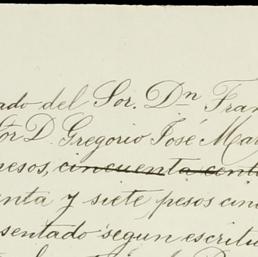 ado del Sor. Dn Fran
or D. Gregorio José Mar
pesos, cincuenta cent
enta y siete pesos cin
sentado segun escritu